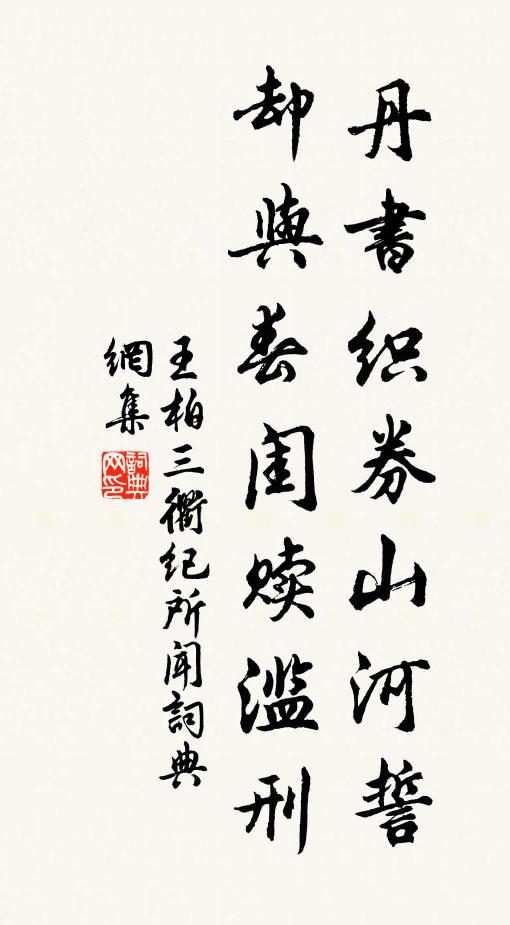 丹書织券山河誓
却與春闺赎滥刑
王柏三衢纪所闻詞典
網集
詞典
网印